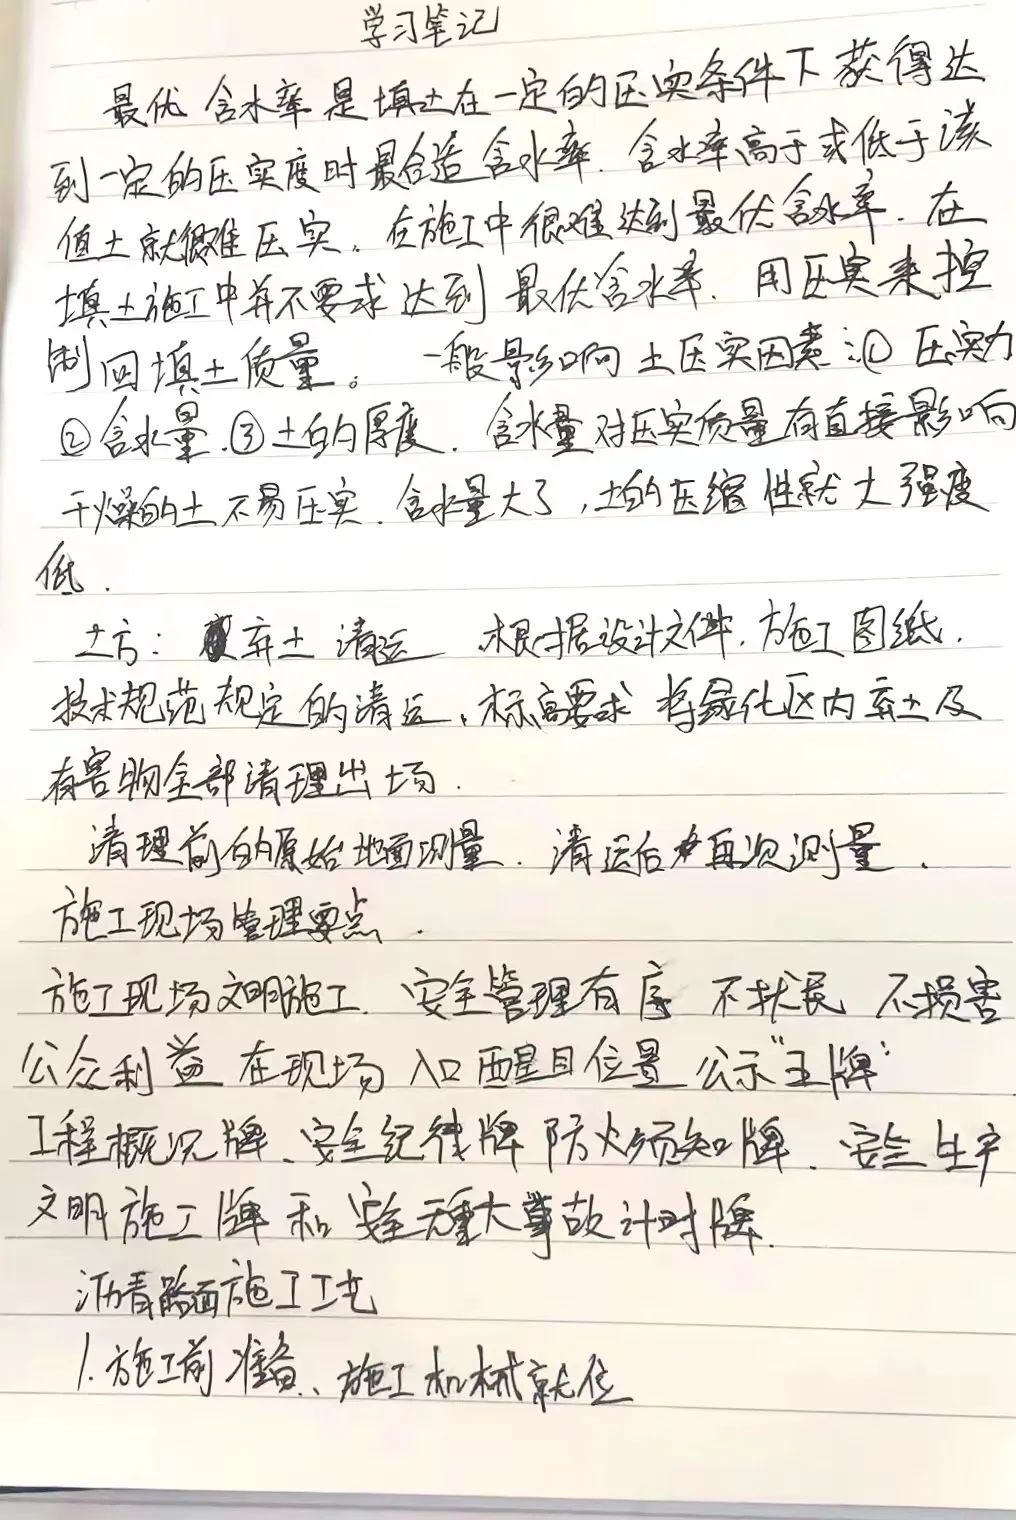 学习笔记
最优含水率是填土在一定的压实条件下获得达
到一定的压实度时最合适含水率.含水率高于或低于该
值土就很难压实。在施工中很难达到最优含水率.在
填土施工中并不要求达到最优含水率.用压实来控
制回填土质量。一般影响土压实因素:①压实力
②含水量.③土的厚度.含水量对压实质量有直接影响
干燥的土不易压实.含水量大了,土的压缩性就大强度
低.
土方:弃土清运 根据设计文件.施工图纸.
技术规范规定的清运、标高要求 将绿化区内弃土及
有害物全部清理出场.
清理前的原始地面测量.清运后再次测量.
施工现场管理要点.
施工现场文明施工.安全管理有序 不扰民 不损害
公众利益 在现场入口醒目位置公示"王牌"
工程概况牌、安全纪律牌 防火须知牌.安全生产
文明施工牌和安全无重大事故计时牌.
沥青路面施工工艺
1.施工前准备、施工机械就位